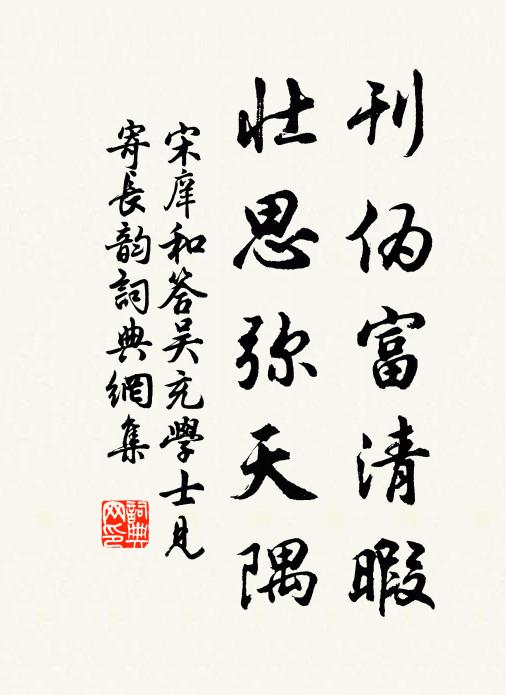 刊伪富清暇
壮思弥天隅
宋庠和答吴充學士見
寄長韵詞典網集
詞典网印